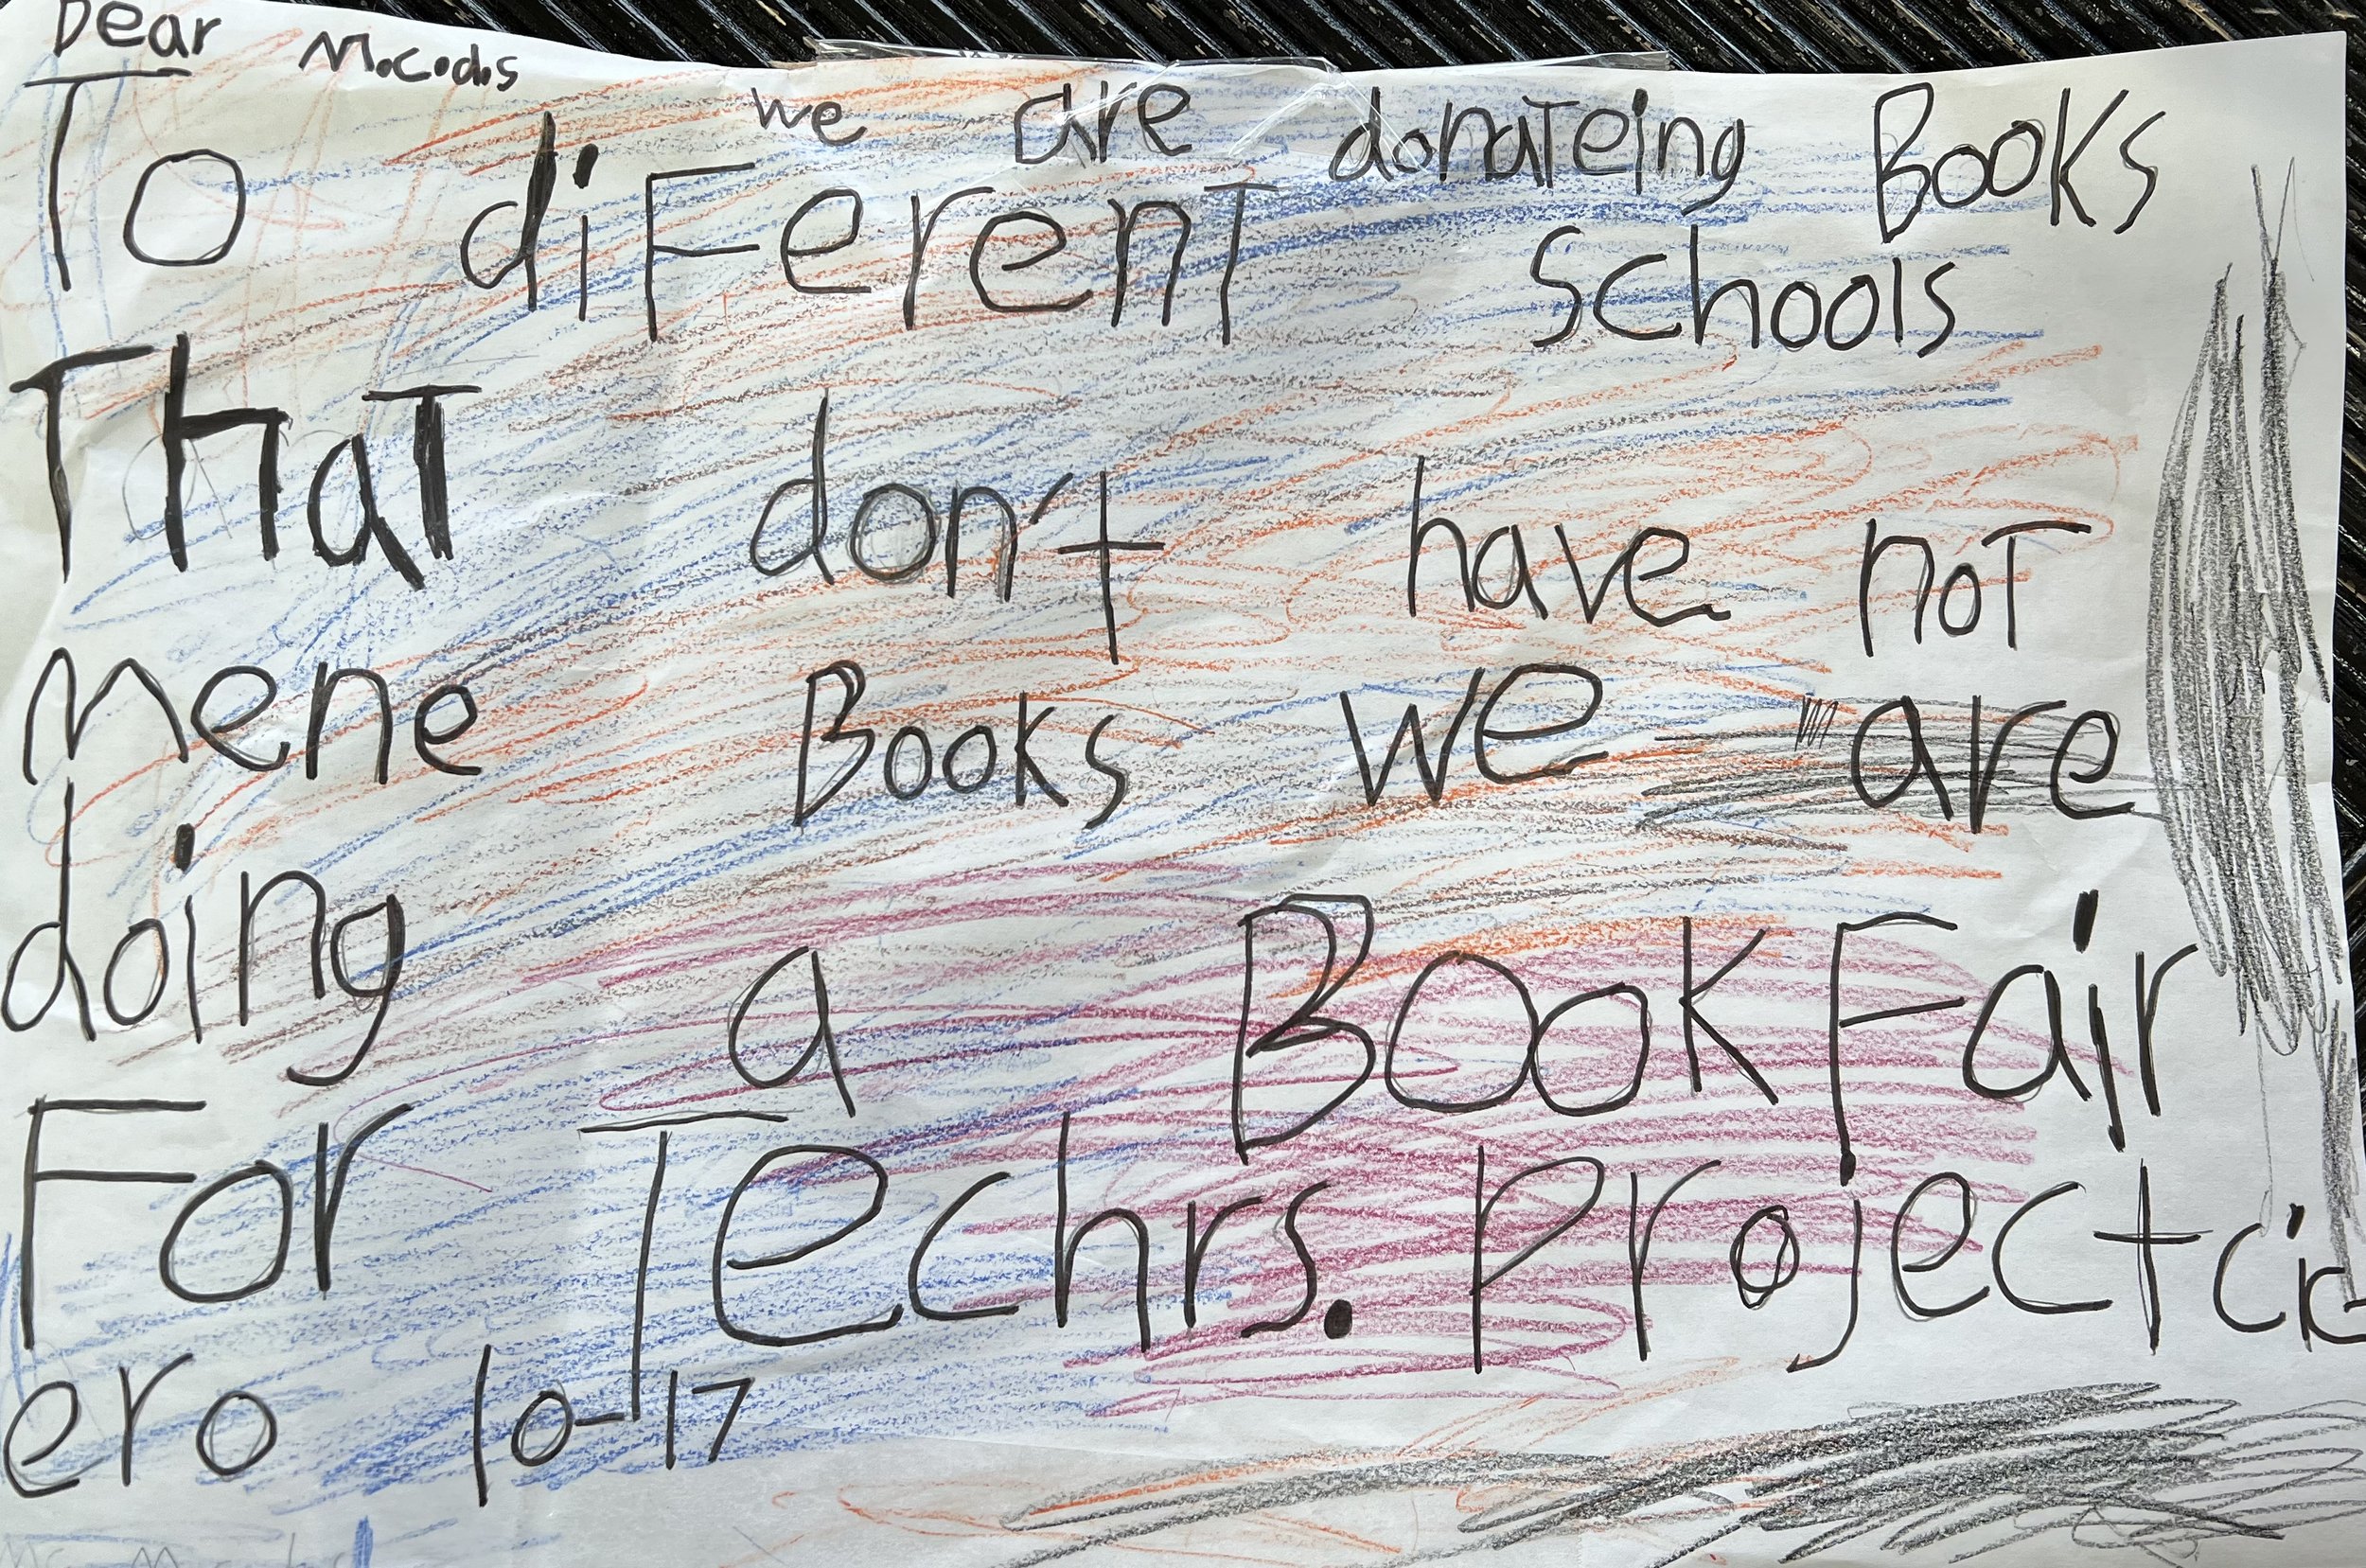 Dear M.c.d.s
we are donateing Books
To diFerenT Schools
ThaT don't have noT
mene Books we are
doing a Book Fair
For Techrs. Project cic
ero 10-17